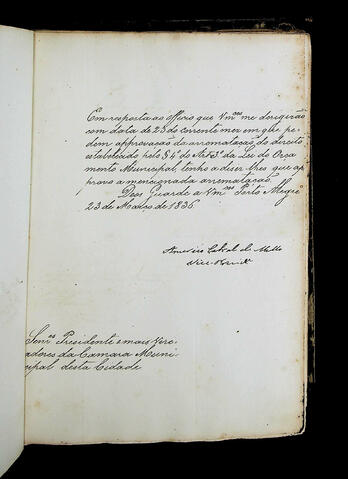 Em resposta ao officio que Vm.ces me derigirão
com data de 23 do corrente mez em que pe-
dem approvação da arromatação do direito
estabelecido pelo § 4º do Art 3º da Lei do Orça
mento Municipal, tenho a diser lhes que ap
provo a mencionada arrematação.
Deos Guarde a Vm.ces Porto Alegre
23 de Março de 1836
Americo Cabral de Mello
Vice-Presid.e
Senr.es Presidente e mais Vere-
adores da Camara Muni-
cipal desta Cidade